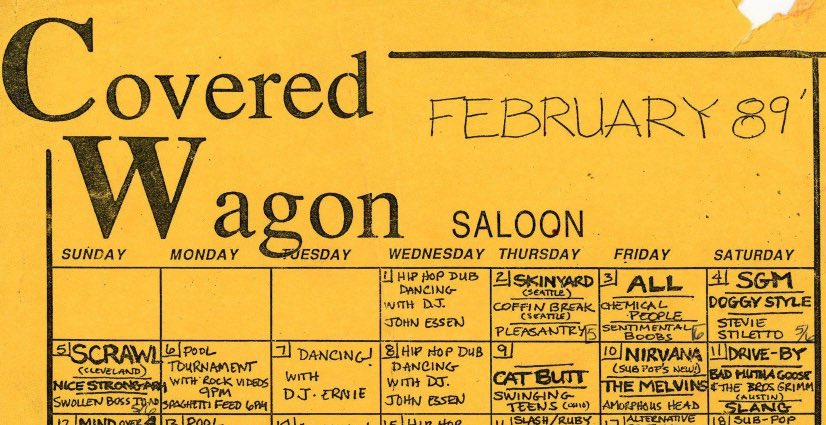 Covered
Wagon
SALOON
FEBRUARY 89'
SUNDAY MONDAY TUESDAY WEDNESDAY THURSDAY FRIDAY SATURDAY
1 HIP HOP DUB
DANCING
WITH D.J.
JOHN ESSEN
2 SKINYARD
(SEATTLE)
COFFIN BREAK
(SEATTLE)
PLEASANTRY 5
3 ALL
CHEMICAL
PEOPLE
SENTIMENTAL
BOOBS 6
4 SGM
DOGGY STYLE
STEVIE
STILETTO 5/6
5 SCRAWL
(CLEVELAND)
NICE STRONG ARM
SWOLLEN BOSS TOAD
5/6
6 POOL
TOURNAMENT
WITH ROCK VIDEOS
9PM
SPAGHETTI FEED 6PM
7 DANCING!
WITH
D.J. ERNIE
8 HIP HOP DUB
DANCING
WITH D.J.
JOHN ESSEN
9
CAT BUTT
SWINGING
TEENS (OHIO)
10 NIRVANA
(SUB POP'S NEW!)
THE MELVINS
AMORPHOUS HEAD
11 DRIVE-BY
BAD MUTHA GOOSE
& THE BROS GRIMM
(AUSTIN)
SLANG
12 MIND OVER 4
13 POOL
14
15 HIP HOP
SLASH/RUBY
17 ALTERNATIVE
18 SUB-POP